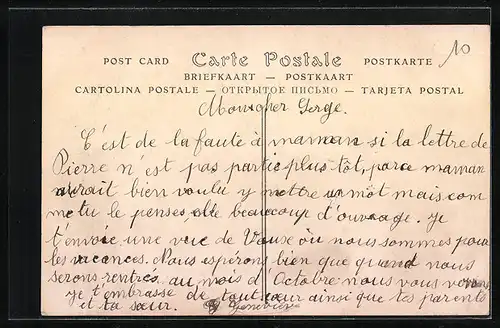 10
POST CARD Carte Postale POSTKARTE
BRIEFKAART — POSTKAART
CARTOLINA POSTALE — ОТКРЫТОЕ ПИСЬМО — TARJETA POSTAL
Mon cher Serge.
C'est de la faute à maman si la lettre de
Pierre n'est pas partie plus tôt, parce maman
aurait bien voulu y mettre un mot mais com
me tu le penses elle beaucoup d'ouvrage. Je
t'envoie une vue de où nous sommes pour
les vacances. Nous espérons bien que quand nous
serons rentrés, au mois d'Octobre nous vous
Je t'embrasse de tout cœur ainsi que tes parents
et ta sœur. Geneviève